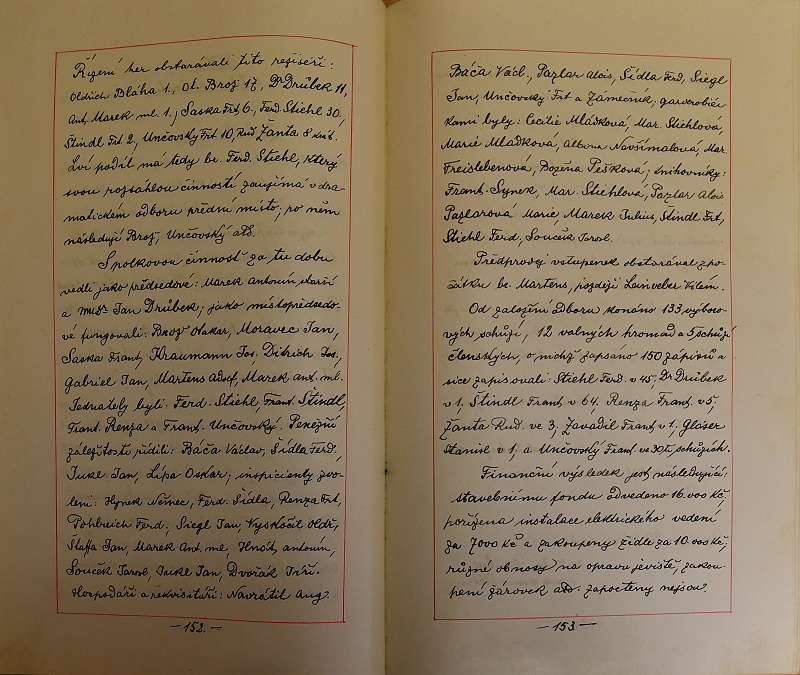 Řízení her obstarávali tito režiséři:
Oldřich Bláha 1., Ot. Brož 17, Dr Drůbek 11,
Ant. Marek ml. 1., Saska Frt. 6., Ferd Stiehl 30,
Štindl Frt 2, Unčovský Frt 10, Rud Žanta 8 krát.
Lví podíl má tedy br. Ferd. Stiehl, který
svou rozsáhlou činností zaujímá v dra-
matickém odboru přední místo; po něm
následují Brož, Unčovský atd.
Spolkovou činnost za tu dobu
vedli jako předsedové: Marek Antonín starší
a Jan Drůbek; jako místopředsedo-
vé fungovali: Brož Otakar, Moravec Jan,
Saska Frant, Kraumann Jos. Ditrich Jos.,
Gabriel Jan, Martens Adolf, Marek ant. ml.
Jednately byli: Ferd. Stiehl, Frant. Štindl,
Frant. Renza a Frant. Unčovský. Peněžní
záležitosti řídili: Báča Václav, Šídla Ferd.,
Juke Jan, Lípa Oskar; inspicienty zvo-
leni: Hynek Němec, Ferd. Šídla, Renza Frt,
Pohbreich Ferd., Siegl Jan, Vyskočil Oldř,
Štaffa Jan, Marek Ant. ml, Hnát, antonín,
Souček Jarosl, Juke Jan, Dvořák Jiří.
Hospodáři a rekvisitáři: Navrátil Aug.
—152.—
Báča Václ., Pazlar Alois, Šídla Ferd, Siegl
Jan, Unčovský Frt a Zámečník; garderobiér-
kami byly: Cecilie Mládková, Mar. Stiehlová,
Marie Mládková, Navšímalová, Mar.
Freislebenová, Božena Pešková; knihovníky:
Frant. Synek, Mar. Stiehlová, Pazlar Alois
Pazlarová Marie, Marek Julius, Štindl Frt,
Stiehl Ferd, Souček Jarosl.
Předprodej vstupenek obstarával zpo-
čátku br. Martens, později Lainveber Vilém.
Od založení Odboru konáno 133 výboro-
vých schůzí, 12 valných hromad a 5 schůzí
členských, o nichž zapsáno 150 zápisů a
sice zapisovali: Stiehl Ferd. v 45, Dr Drůbek
v 1, Štindl Frant. v 64, Renza Frant. v 5,
Žanta Rud. ve 3, Zavadil Frant v 1, Gláser
Stanisl v 1, a Unčovský Frant. ve 30ti schůzích.
Finanční výsledek jest následující:
stavebnímu fondu odvedeno 16.000 Kč,
pořízena instalace elektrického vedení
za 7000 Kč a zakoupeny židle za 10.000 Kč,
různé obnosy na opravu jeviště, zakou-
pení žárovek atd. započteny nejsou.
—153—